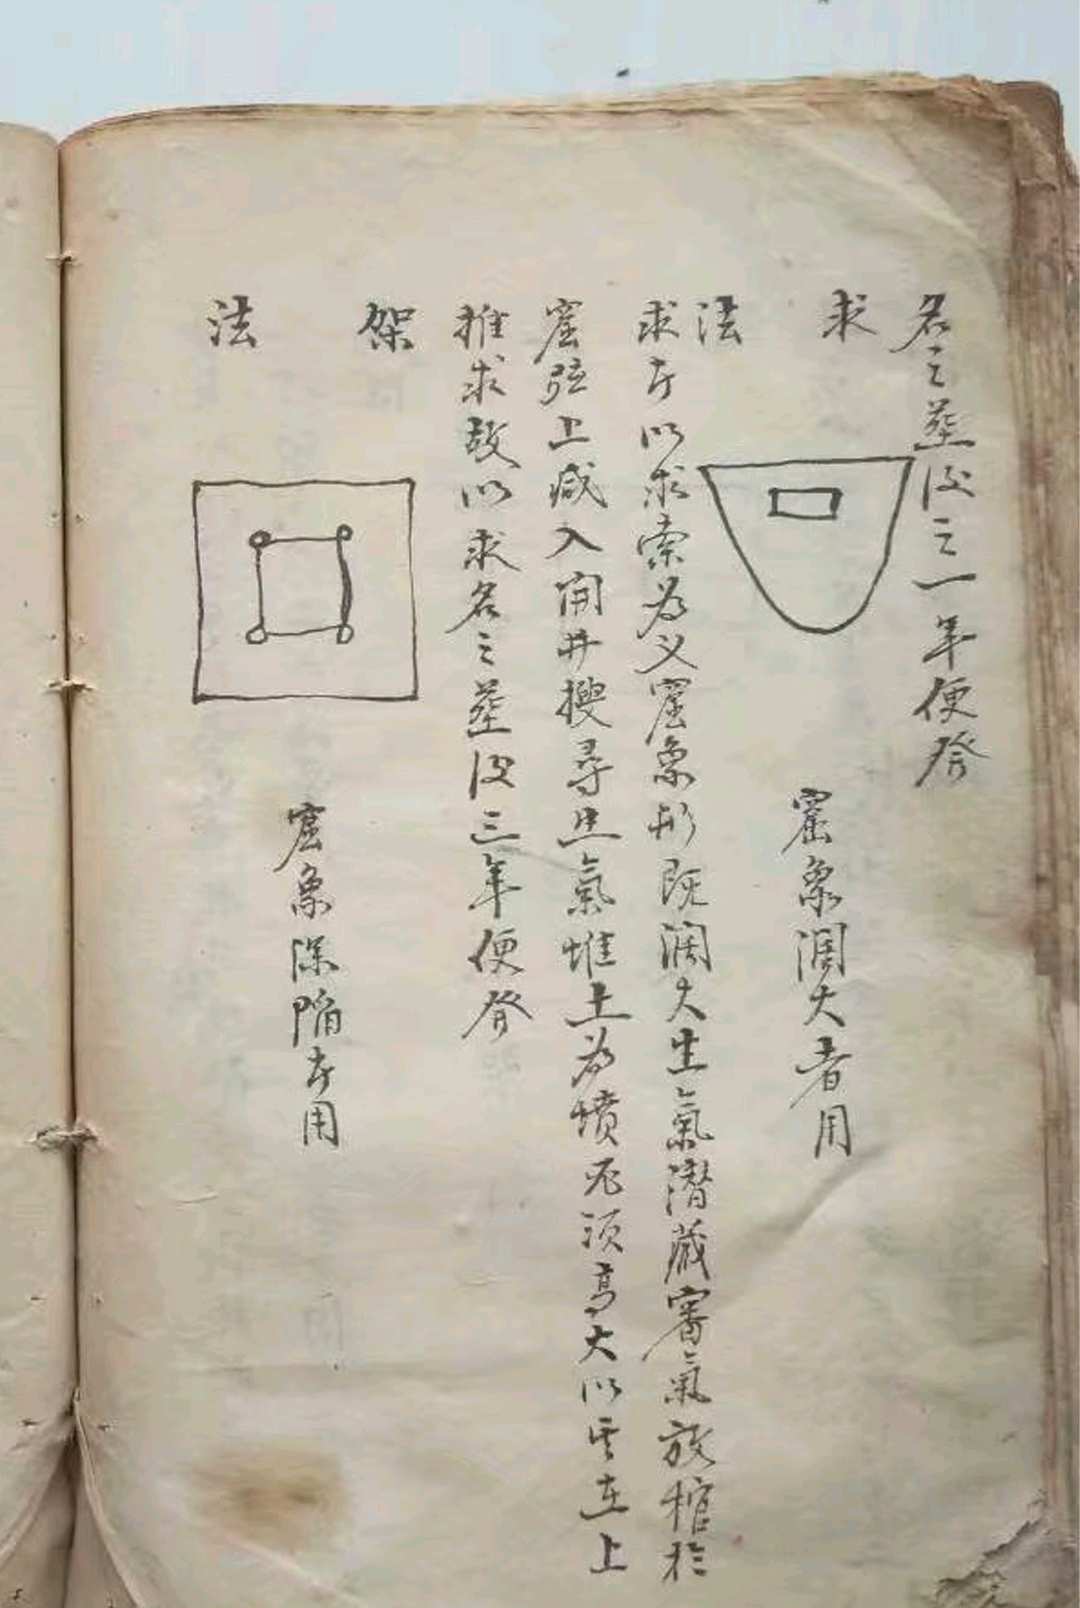 名之葬后之一年便發
求
法
窟象濶大者用
求者以求索為义窟象形既濶大生氣潜藏審氣放棺於
窟弦上咸入開井搜尋生氣堆土為墳不須高大以其在上
推求故以求名之葬后三年便發
架
法
窟象深陷者用